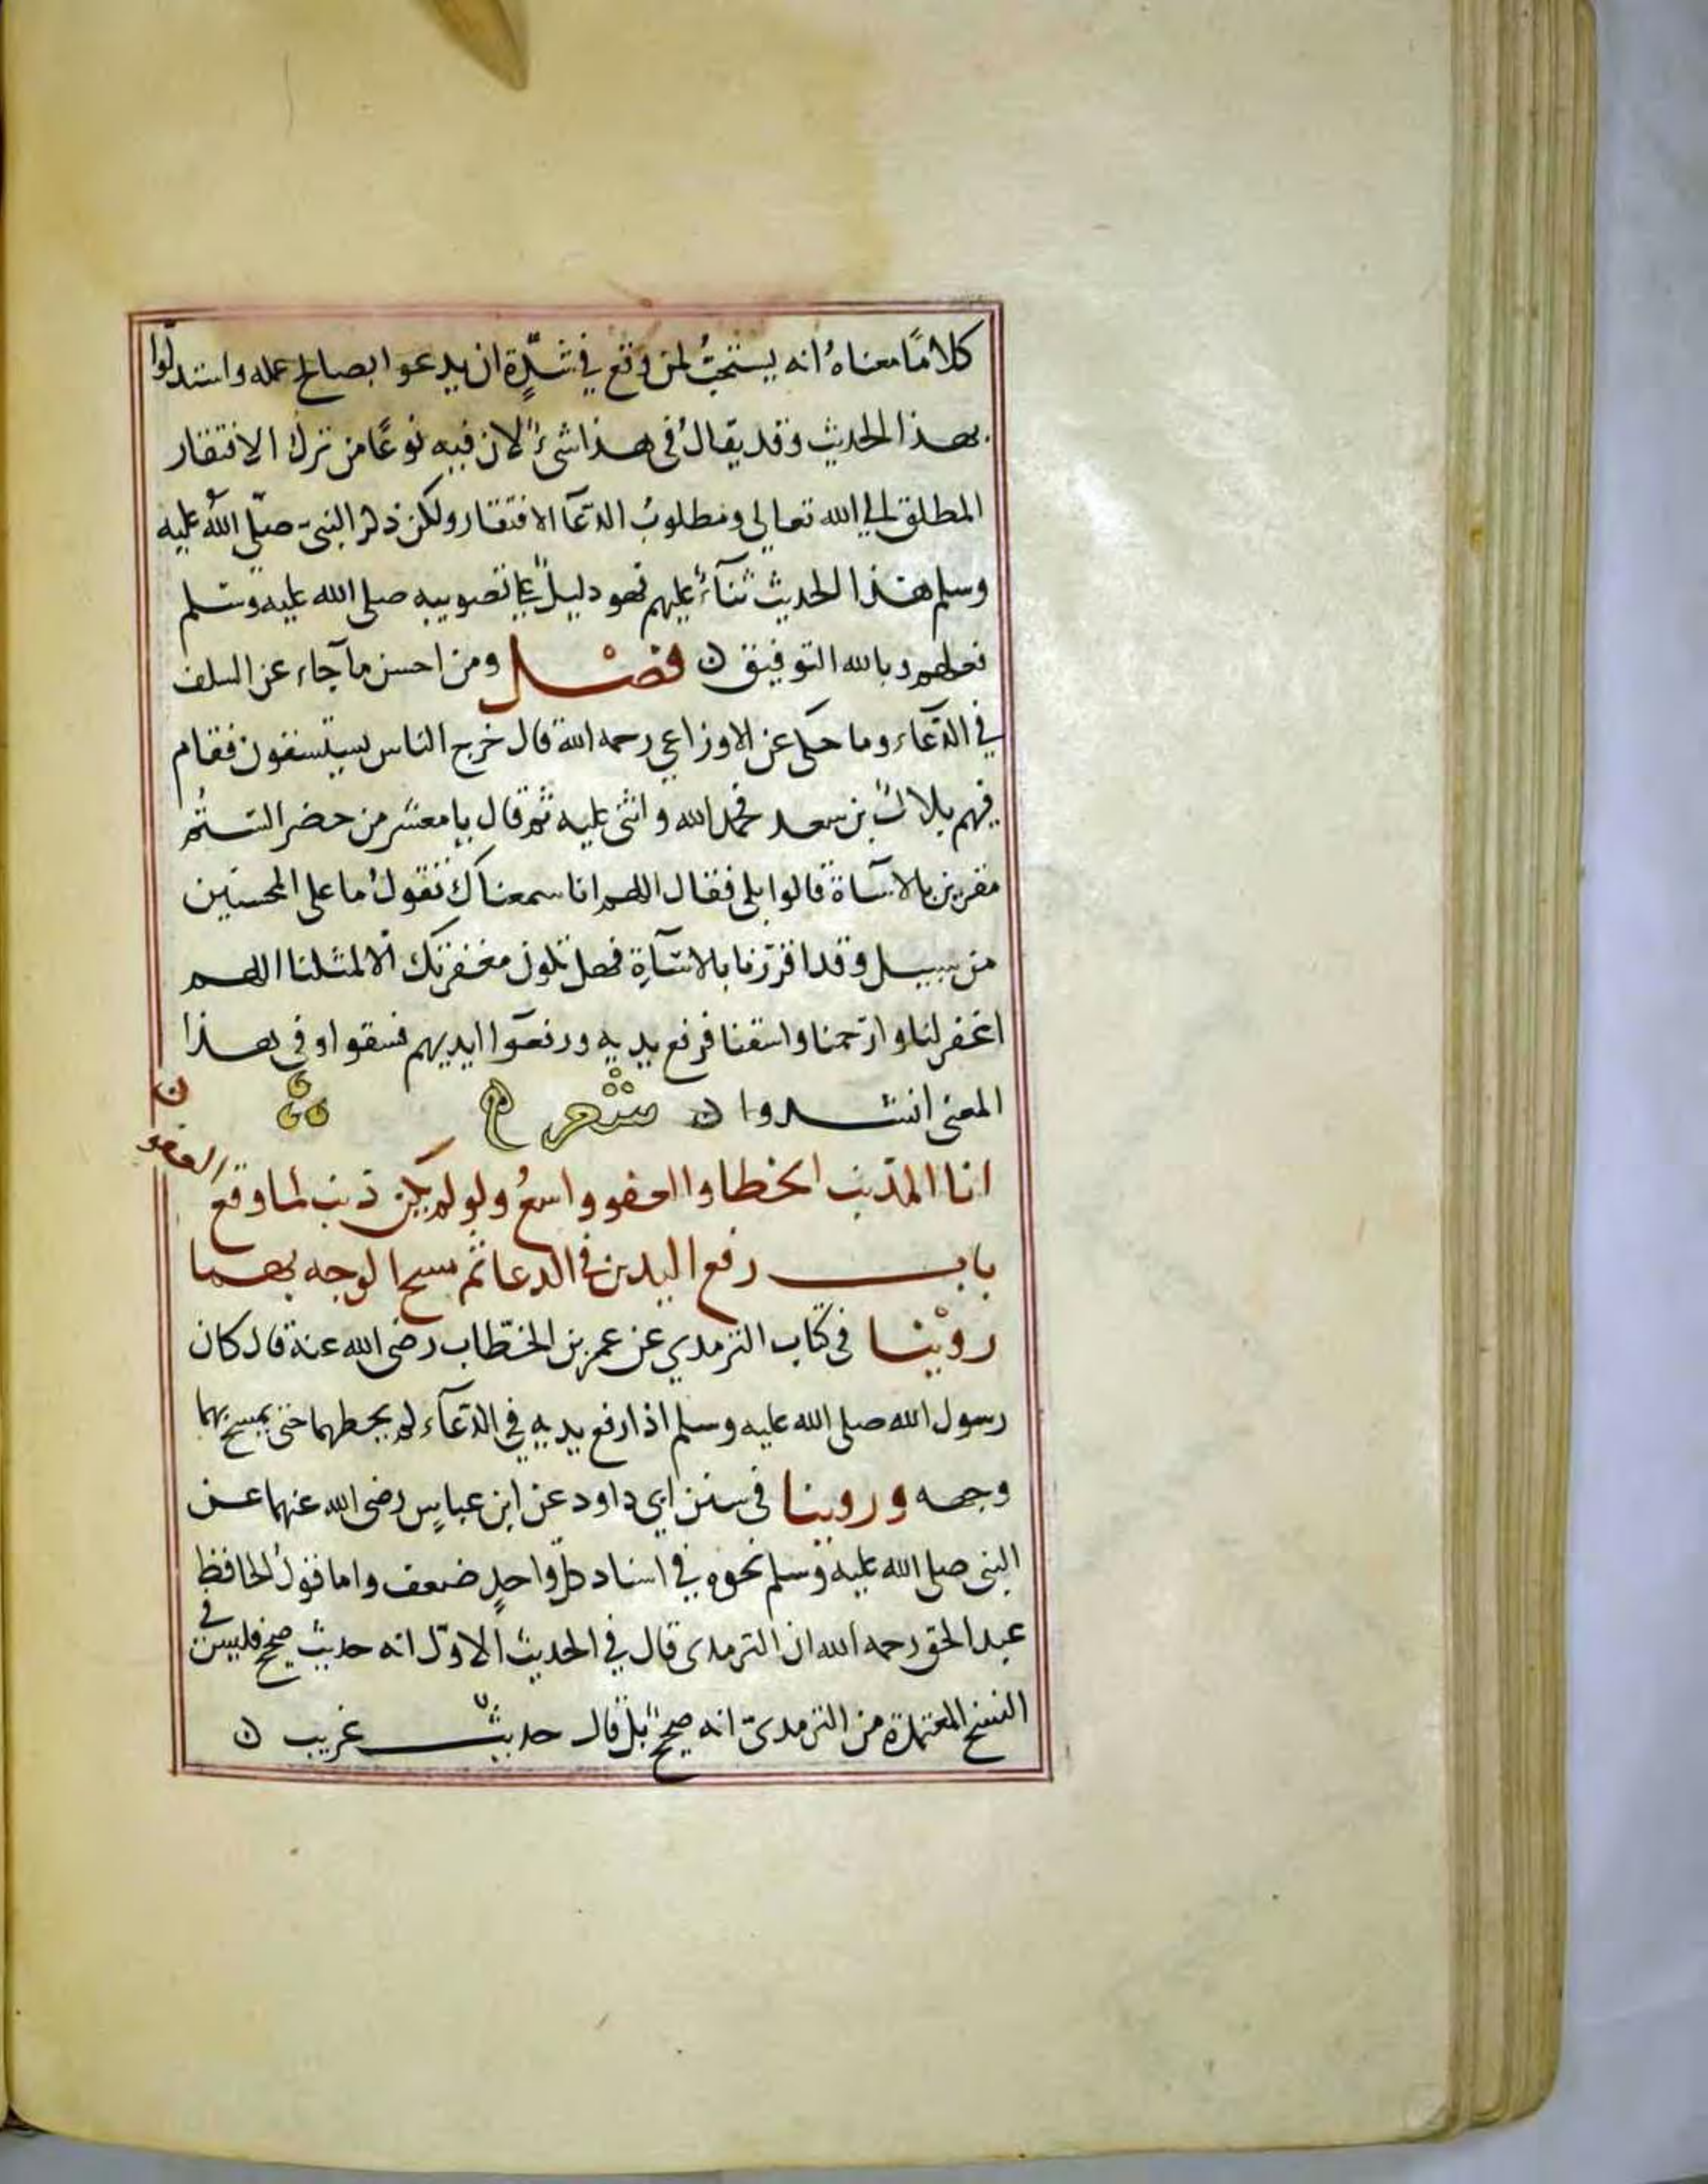 كلامًا معناهُ انه يستحبُ لمن وقع في شدّةٍ ان يدعوا بصالح عمله واستدلّوا
بهذا الحديث وقد يقالُ فى هذا شئٌ لان فيه نوعًا من ترك الافتقار
المطلق الى الله تعالى ومطلوبُ الدّعآ الافتقار ولكن ذكر النبىّ صلّى اللهُ عليه
وسلم هذا الحديث ثنآءً عليهم فهو دليلٌ على تصويبه صلى الله عليه وسلم
فعلهم وبالله التوفيق ن فصْل ومن احسن مآ جاء عن السلف
في الدّعآء وما حكى عن الاوزاعي رحمه الله قال خرج الناس يستسقون فقام
فيهم بلالُ بن سعد فحمد الله واثنى عليه ثم قال يا معشر من حضر الستُم
مقرين بالاسآة قالوا بلى فقال اللهم انا سمعناك تقولُ ما على المحسنين
من سبيل وقد اقررنا بالاسآة فهل تكون مغفرتك الا لمثلنا اللهم
اغفر لنا وارحمنا واسقنا فرفع يديه ورفعوا ايديهم فسقوا وفى هذا
المعنى انشدوا ن شعر
انا المذنب الخطا والعفو واسعُ ولو لم يكن ذنب لما وقع العفو ن
باب رفع اليدين فى الدعا ثم مسح الوجه بهما
روينْا فى كتاب الترمدي عن عمر بن الخطّاب رضى الله عنه قال كان
رسول الله صلى الله عليه وسلم اذا رفع يديه في الدّعآء لم يحطهما حتى يمسح بهما
وجهه وروينا فى سنن ابي داود عن ابن عباسٍ رضى الله عنهما عن
النبى صلى الله عليه وسلم نحوه في اسناد كلّ واحدٍ ضعف واما قول الحافظ
عبد الحق رحمه الله ان الترمدى قال في الحديث الاوّل انه حديث صحيح فليس في
النسخ المعتمدة من الترمدىّ انه صحيح بل قال حديث غريب ن